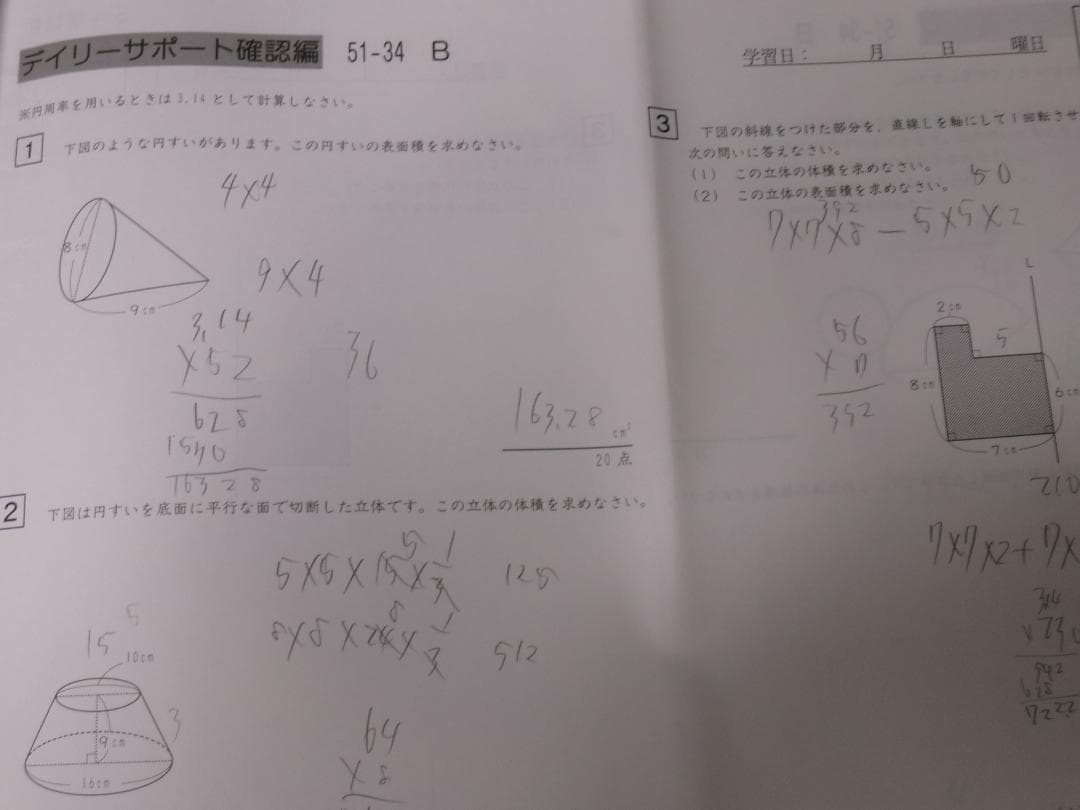 デイリーサポート確認編 51-34 B
※円周率を用いるときは3.14として計算しなさい。
1 下図のような円すいがあります。この円すいの表面積を求めなさい。
4×4
8cm
9×4
9cm
3.14
×52
628
1570
163 28
36
163.28 cm²
20点
2 下図は円すいを底面に平行な面で切断した立体です。この立体の体積を求めなさい。
5×5×15×1/3 125
5
8×8×24×1/3 512
8
5
15
10cm
3
9cm
16cm
64
×8
学習日: 月 日 曜日
3 下図の斜線をつけた部分を、直線Lを軸にして1回転させ
次の問いに答えなさい。
(1) この立体の体積を求めなさい。
(2) この立体の表面積を求めなさい。
50
392
7×7×8－5×5×2
L
2cm
5
56
× 7
392
8cm
6cm
7cm
210
7×7×2+7×
942
628
7222